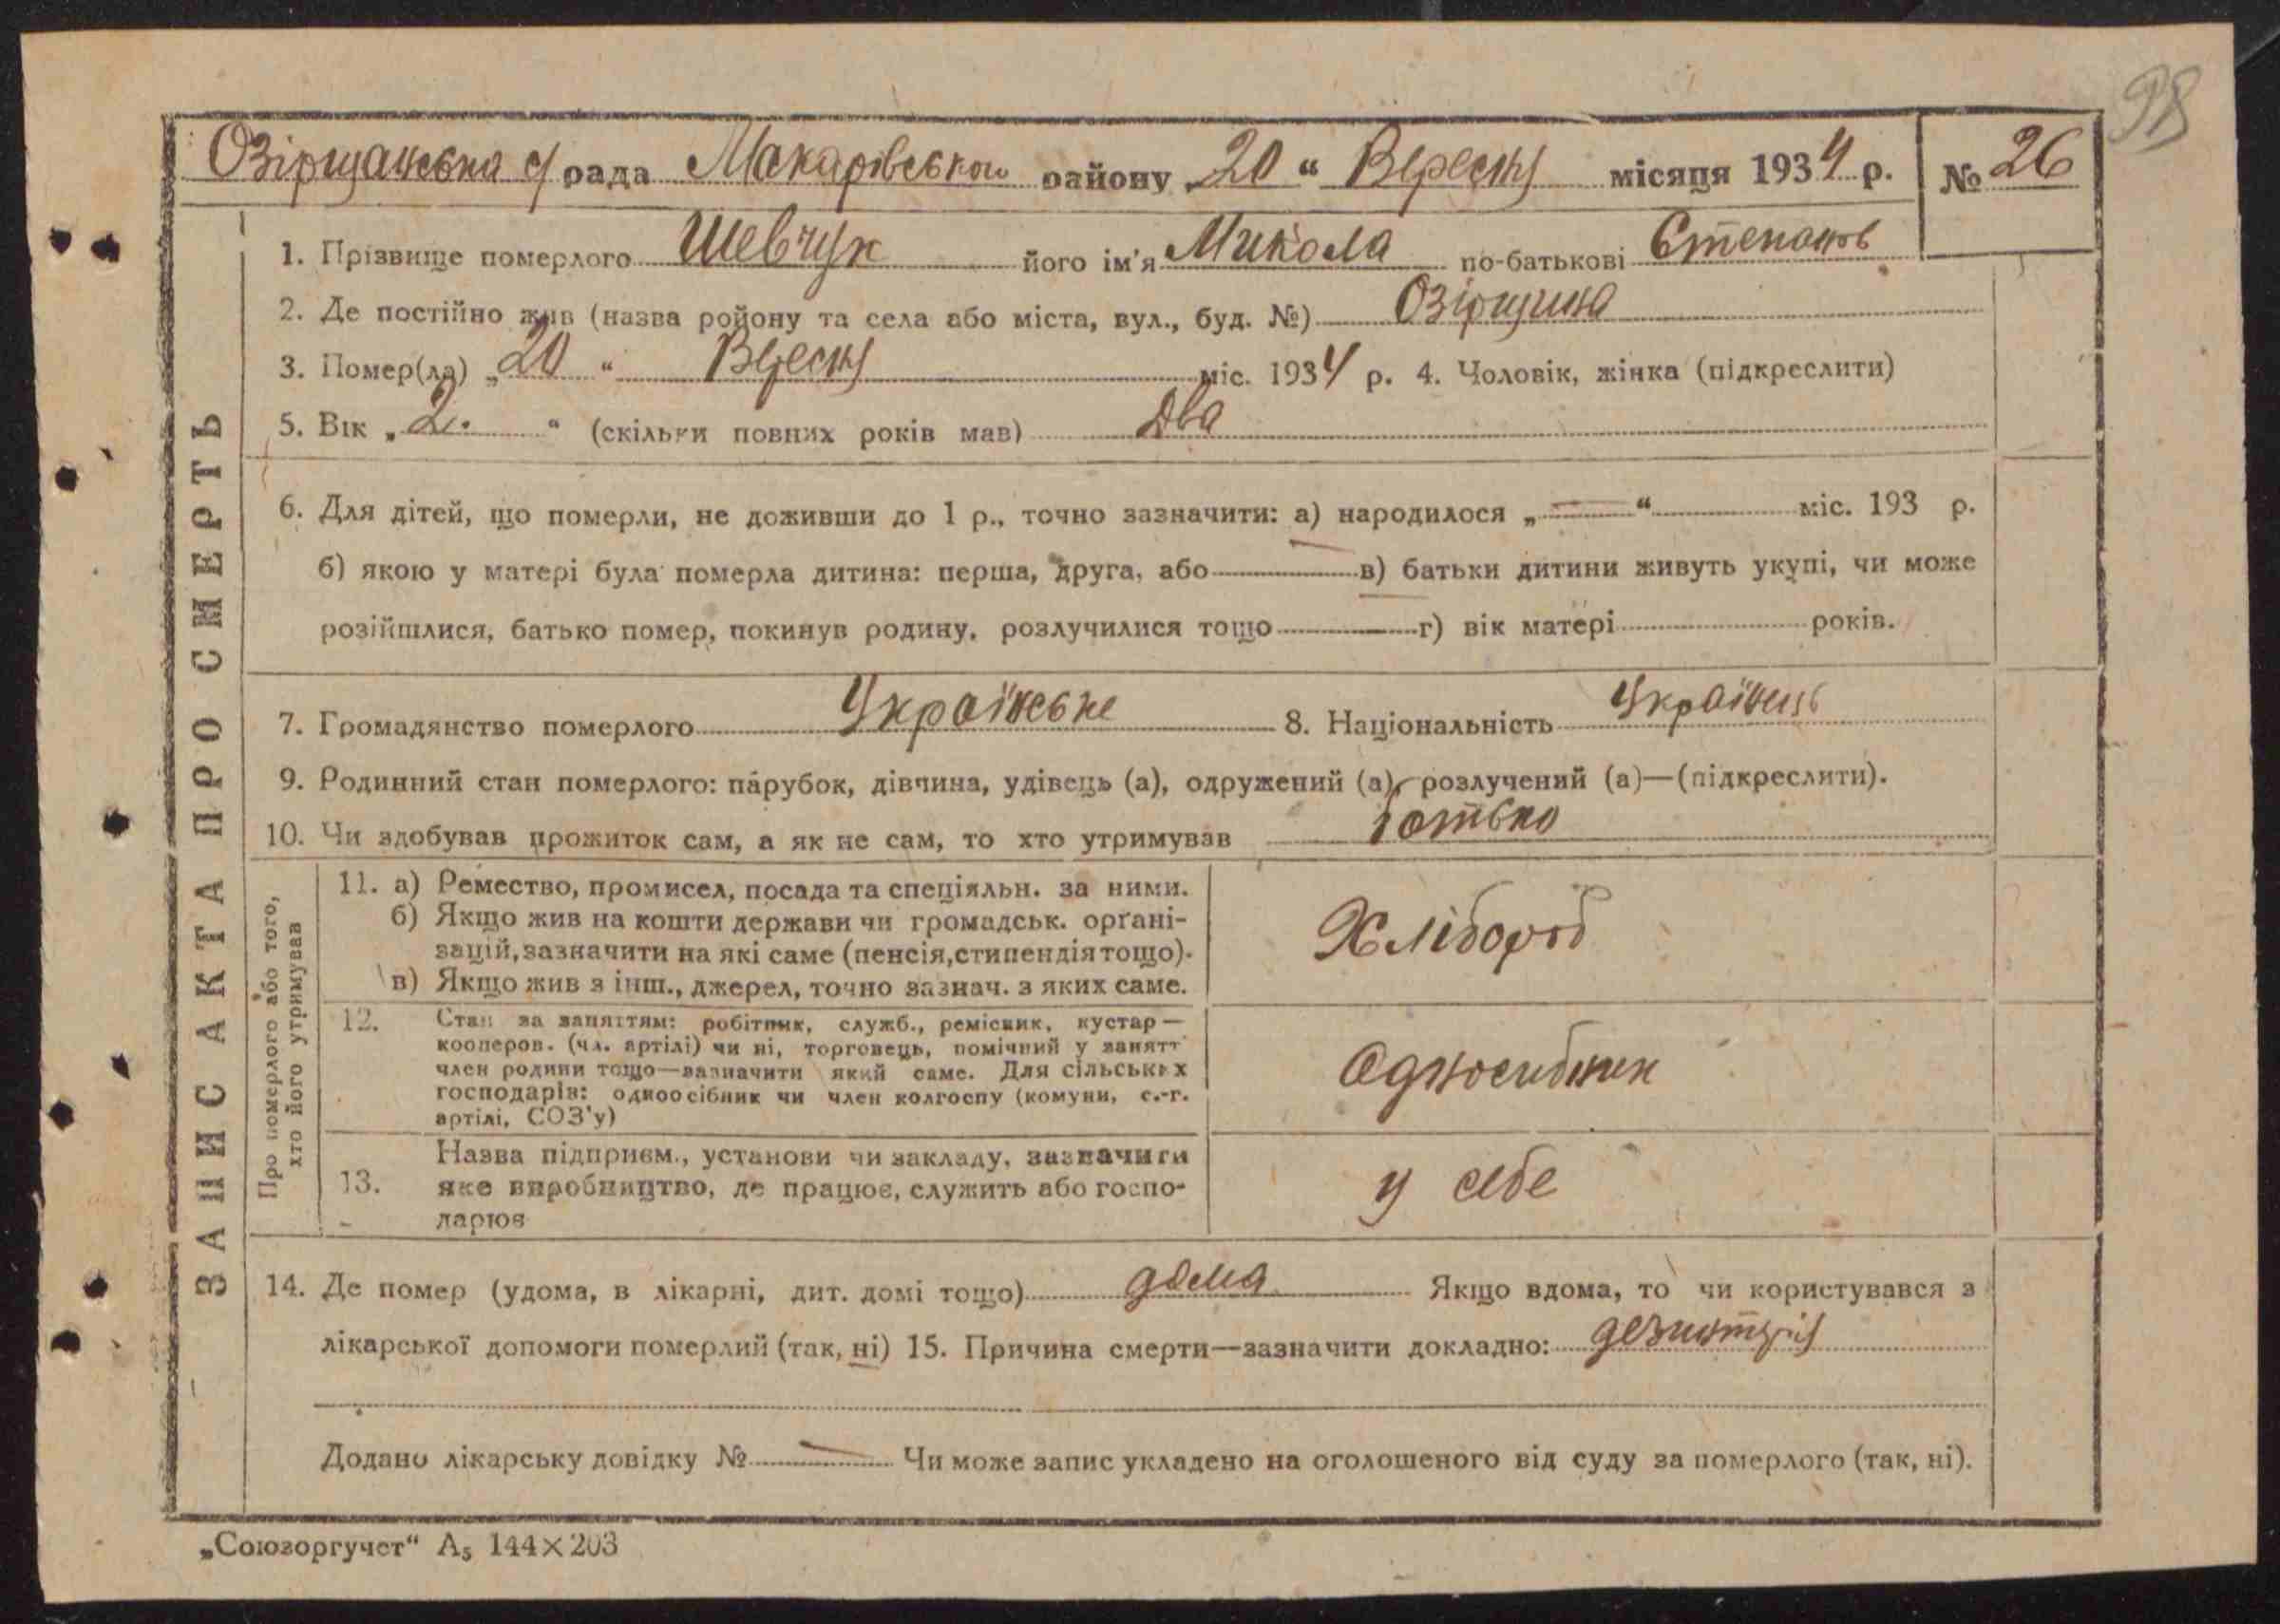 98
Озірщанська с/рада Макарівського району „20“ Вересня місяця 1934 р. № 26
1. Прізвище померлого Шевчук його ім'я Микола по-батькові Степанов
2. Де постійно жив (назва ройону та села або міста, вул., буд. №) Озірщина
3. Помер(ла) „20“ Вересня міс. 1934 р. 4. Чоловік, жінка (підкреслити)
5. Вік „2.“ (скільки повних років мав) два
6. Для дітей, що померли, не доживши до 1 р., точно зазначити: а) народилося „—“ міс. 193 р.
б) якою у матері була померла дитина: перша, друга, або в) батьки дитини живуть укупі, чи може
розійшлися, батько помер, покинув родину, розлучилися тощо г) вік матері років.
7. Громадянство померлого Українське 8. Національність Українець
9. Родинний стан померлого: парубок, дівчина, удівець (а), одружений (а), розлучений (а)—(підкреслити).
10. Чи здобував прожиток сам, а як не сам, то хто утримував батько
ЗАПИС АКТА ПРО СМЕРТЬ
Про померлого або того,
хто його утримував
11. а) Ремество, промисел, посада та спеціяльн. за ними.
б) Якщо жив на кошти держави чи громадськ. орґані-
зацій, зазначити на які саме (пенсія, стипендія тощо).
в) Якщо жив з інш., джерел, точно зазнач. з яких саме.
Хлібороб
12. Стан за заняттям: робітник, служб., ремісник, кустар—
кооперов. (чл. артілі) чи ні, торговець, помічний у занятт
член родини тощо—зазначити який саме. Для сільських
господарів: одноосібник чи член колгоспу (комуни, с.-г.
артілі, СОЗ'у)
Односибник
13. Назва підприєм., установи чи закладу, зазначити
яке виробництво, де працює, служить або госпо-
дарює
у себе
14. Де помер (удома, в лікарні, дит. домі тощо) дома Якщо вдома, то чи користувався з
лікарської допомоги померлий (так, ні) 15. Причина смерти—зазначити докладно: дезинтрія
Додано лікарську довідку № — Чи може запис укладено на оголошеного від суду за померлого (так, ні).
„Союзоргучет“ А₅ 144×203